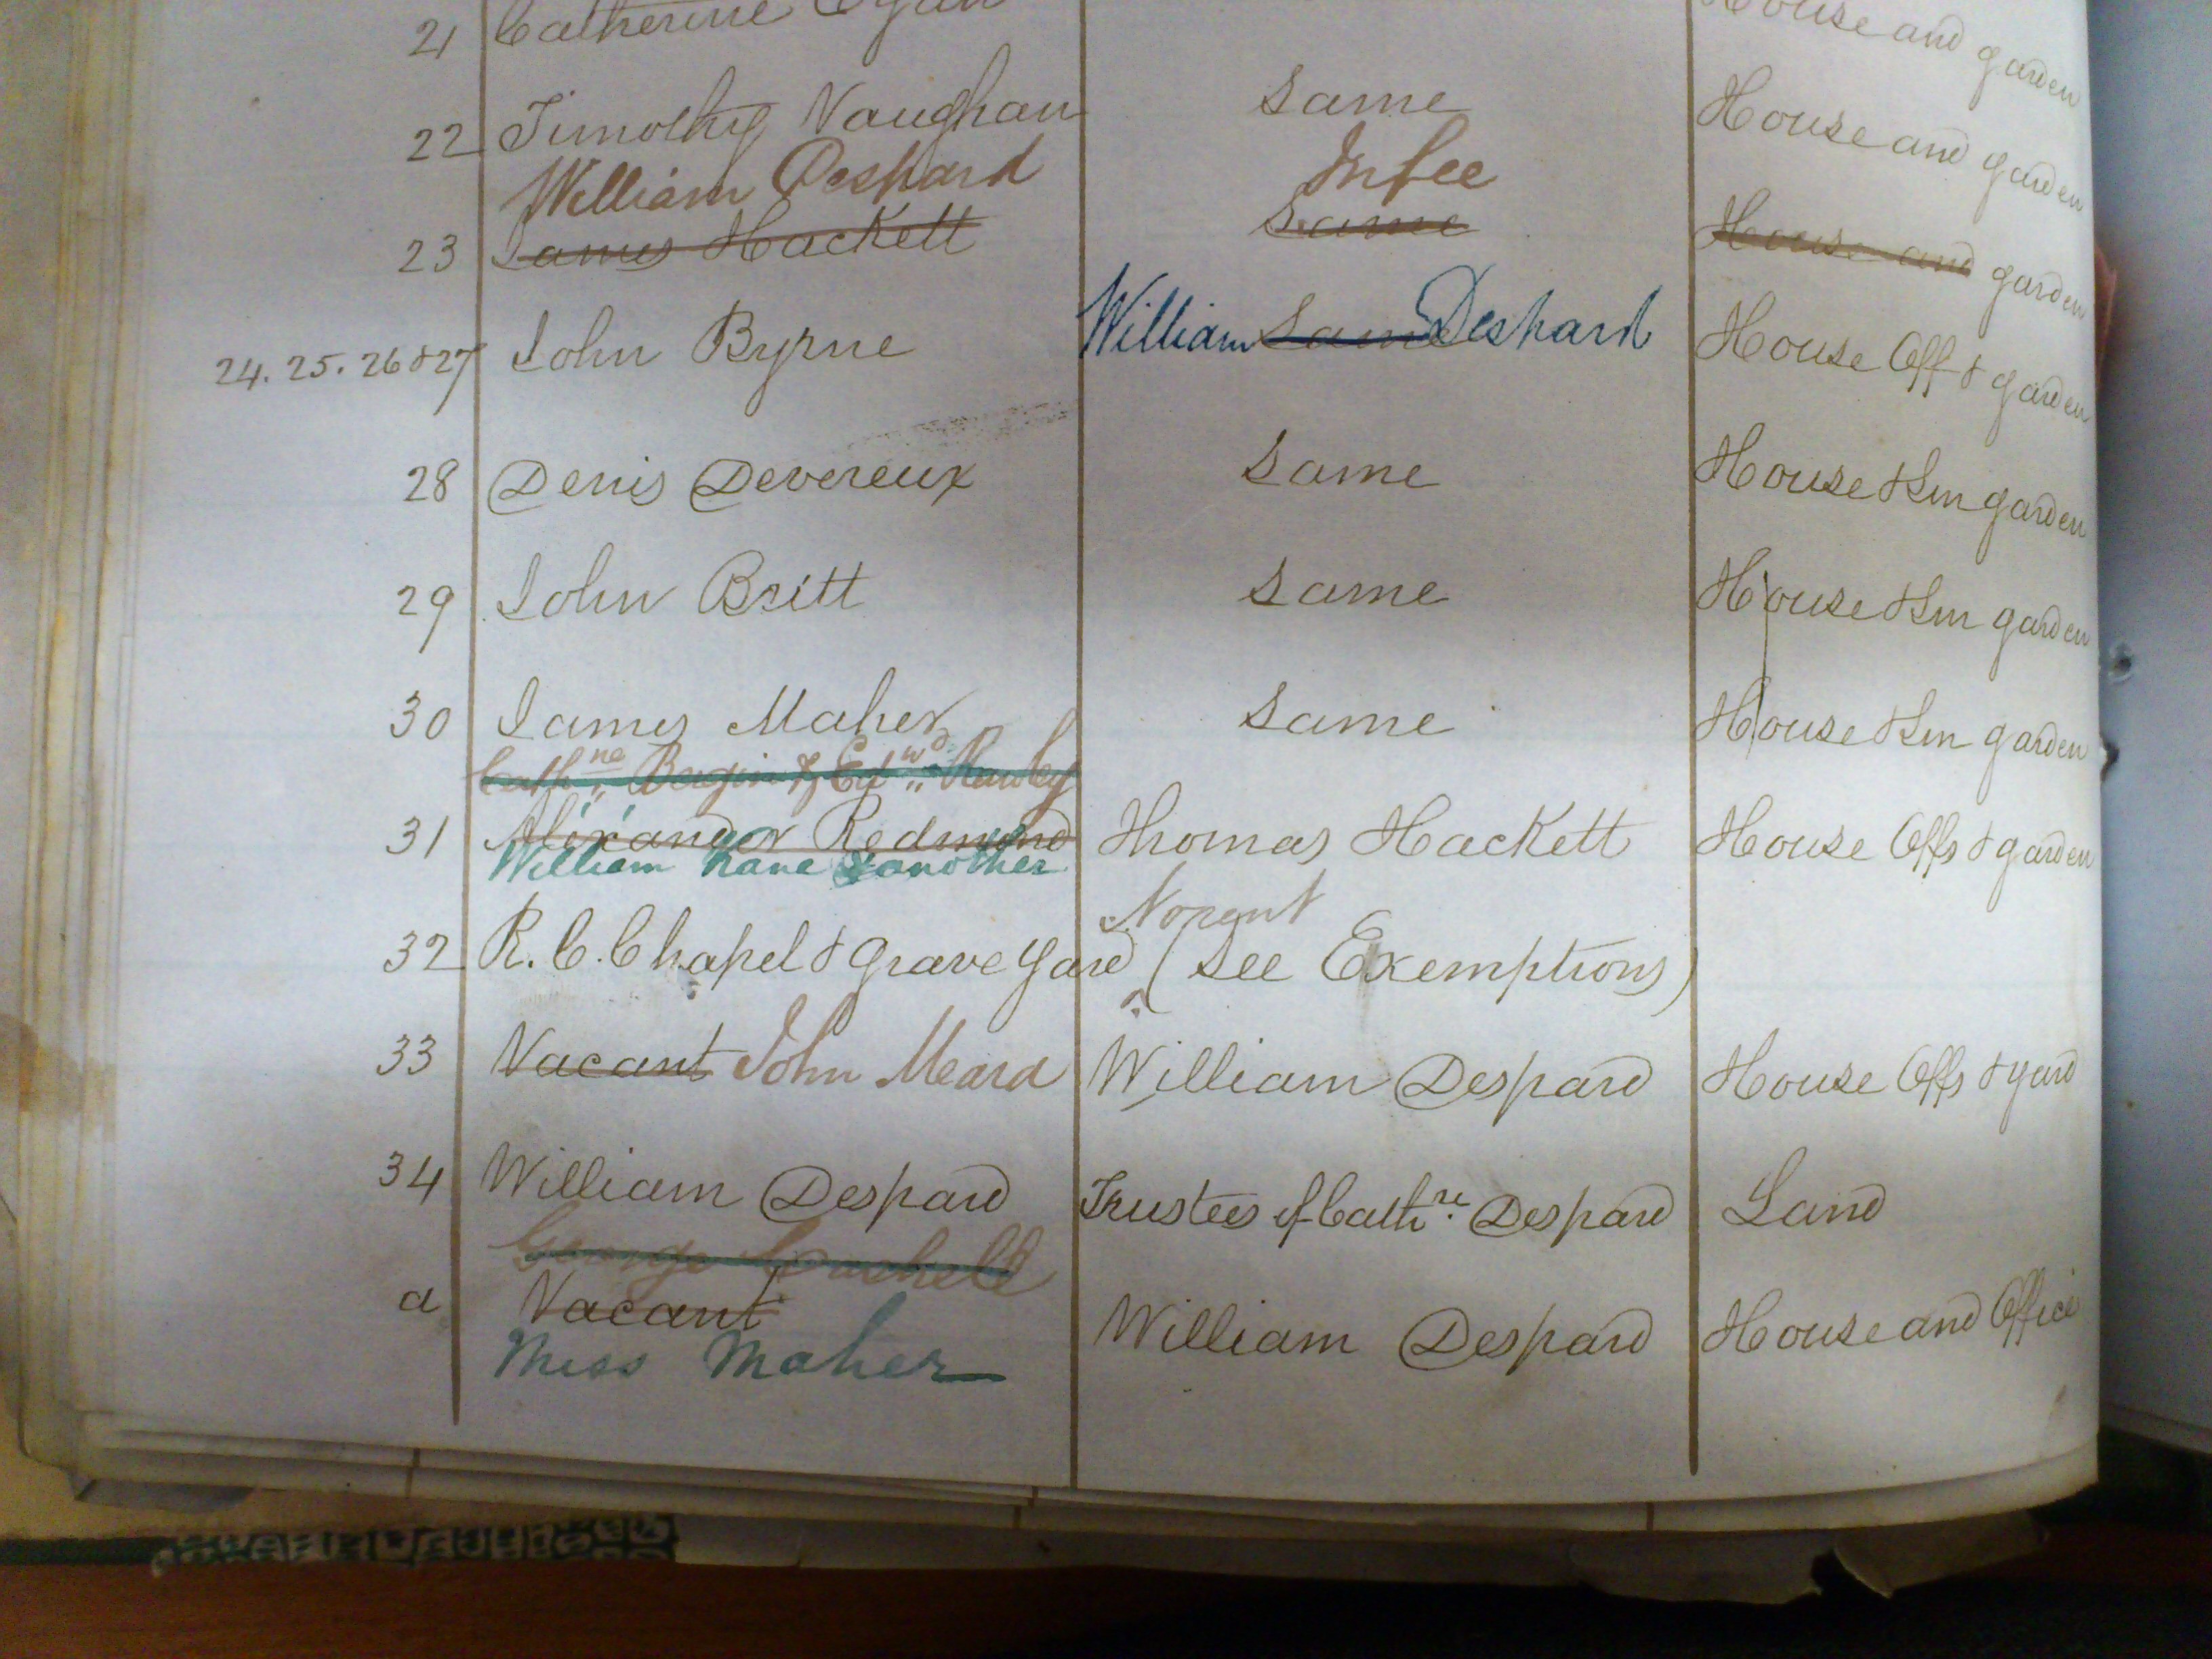 21 Catherine Egan House and garden
22 Timothy Vaughan Same House and garden
William Despard In fee
23 James Hackett Same House and garden
24. 25. 26 & 27 John Byrne William Same Despard House Off & garden
28 Denis Devereux Same House & Sm garden
29 John Britt Same House & Sm garden
30 James Maher Same House & Sm garden
Cathne Bergin & Edwd
31 Alexander Redmond Thomas Hackett House Offs & garden
William Kane & another
No rent
32 R. C. Chapel & Grave Yard (See Exemptions)
33 Vacant John Meara William Despard House Offs & yard
34 William Despard Trustees of Cathne Despard Land
George
a Vacant William Despard House and Office
Miss Maher